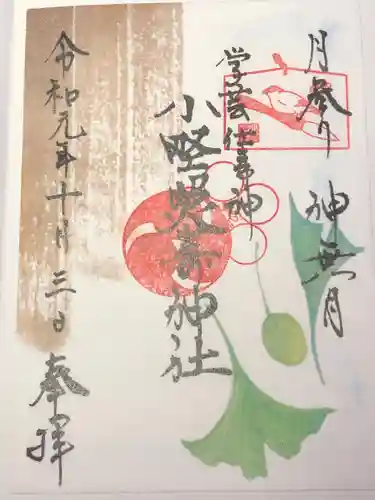 月參り 神無月
学芸仕事神
小野照崎神社
令和元年十月三日
奉拝